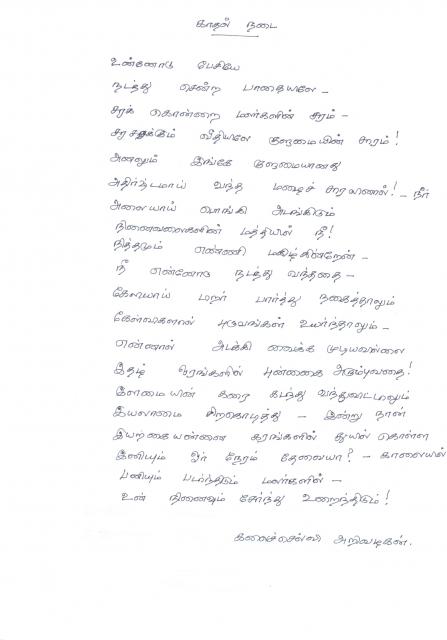 காதல் நடை
உன்னோடு பேசியே
நடந்து சென்ற பாதையிலே -
சரக் கொன்றை மலர்களின் சரம் -
சரசரக்கும் வீதியிலே குளுமையின் சாரம்!
அனலும் இங்கே குளுமையானது
அதிர்ஷ்டமாய் வந்த மழைச் சாரலினால்! - நீர்
அலையாய் பொங்கி அடங்கிடும்
நினைவலைகளின் மத்தியில் நீ!
நித்தமும் எண்ணி மகிழ்கின்றேன் -
நீ என்னோடு நடந்து வந்ததை -
கேலியாய் மலர் பார்த்து நகைத்தாலும்
கேள்விகளால் புருவங்கள் உயர்ந்தாலும் -
என்னால் அடக்கி வைக்க முடியவில்லை
இதழ் ஓரங்களில் புன்னகை அரும்புவதை!
இளமையின் கரை கடந்து வந்துவிட்டாலும்
இயலாமை சிறகொடித்து - இன்று நான்
இயற்கையன்னை கரங்களில் துயில் கொள்ள
இனியும் ஓர் நேரம் தேவையா? - காலையில்
பனியும் படர்ந்திடும் மலர்களின் -
உன் நினைவும் சேர்ந்து உறைந்திடும்!
கலைச்செல்வி அறிவழகன்.